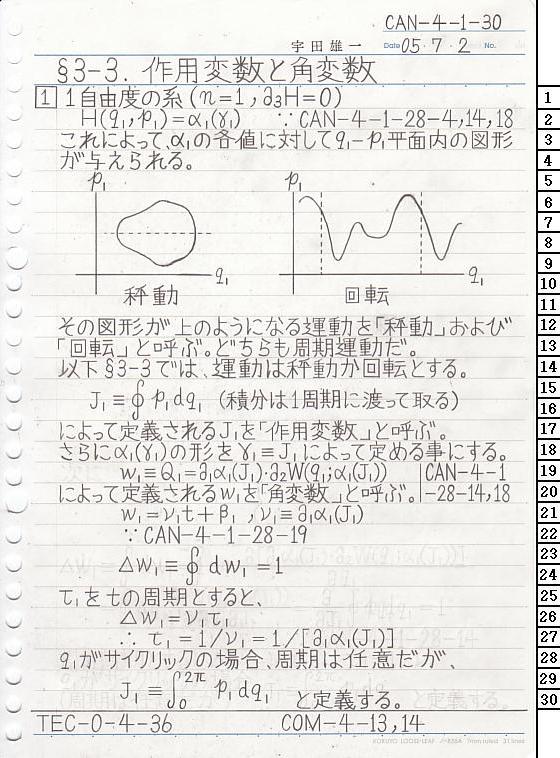 CAN-4-1-30
宇田雄一 Date 05・7・2 No.
§3-3. 作用変数と角変数
1 1自由度の系(n=1,∂₃H=0)
H(q₁,p₁)=α₁(γ₁) ∵CAN-4-1-28-4,14,18
これによって、α₁の各値に対してq₁-p₁平面内の図形
が与えられる。
p₁ p₁
q₁ q₁
秤動 回転
その図形が上のようになる運動を「秤動」および
「回転」と呼ぶ。どちらも周期運動だ。
以下§3-3では、運動は秤動か回転とする。
J₁≡∮p₁dq₁ (積分は1周期に渡って取る)
によって定義されるJ₁を「作用変数」と呼ぶ。
さらにα₁(γ₁)の形をγ₁≡J₁によって定める事にする。
w₁≡Q₁=∂₁α₁(J₁)・∂₂W(q₁;α₁(J₁)) |CAN-4-1
によって定義されるw₁を「角変数」と呼ぶ。|-28-14,18
w₁=ν₁t+β₁,ν₁≡∂₁α₁(J₁)
∵CAN-4-1-28-19
△w₁≡∮dw₁=1
τ₁をtの周期とすると、
△w₁=ν₁τ₁
∴τ₁=1/ν₁=1/[∂₁α₁(J₁)]
q₁がサイクリックの場合、周期は任意だが、
J₁≡∫₀²ᵖⁱ p₁dq₁ と定義する。
TEC-0-4-36 COM-4-13,14
KOKUYO LOOSE-LEAF ノ-836A 7mm ruled 31 lines
1
2
3
4
5
6
7
8
9
10
11
12
13
14
15
16
17
18
19
20
21
22
23
24
25
26
27
28
29
30